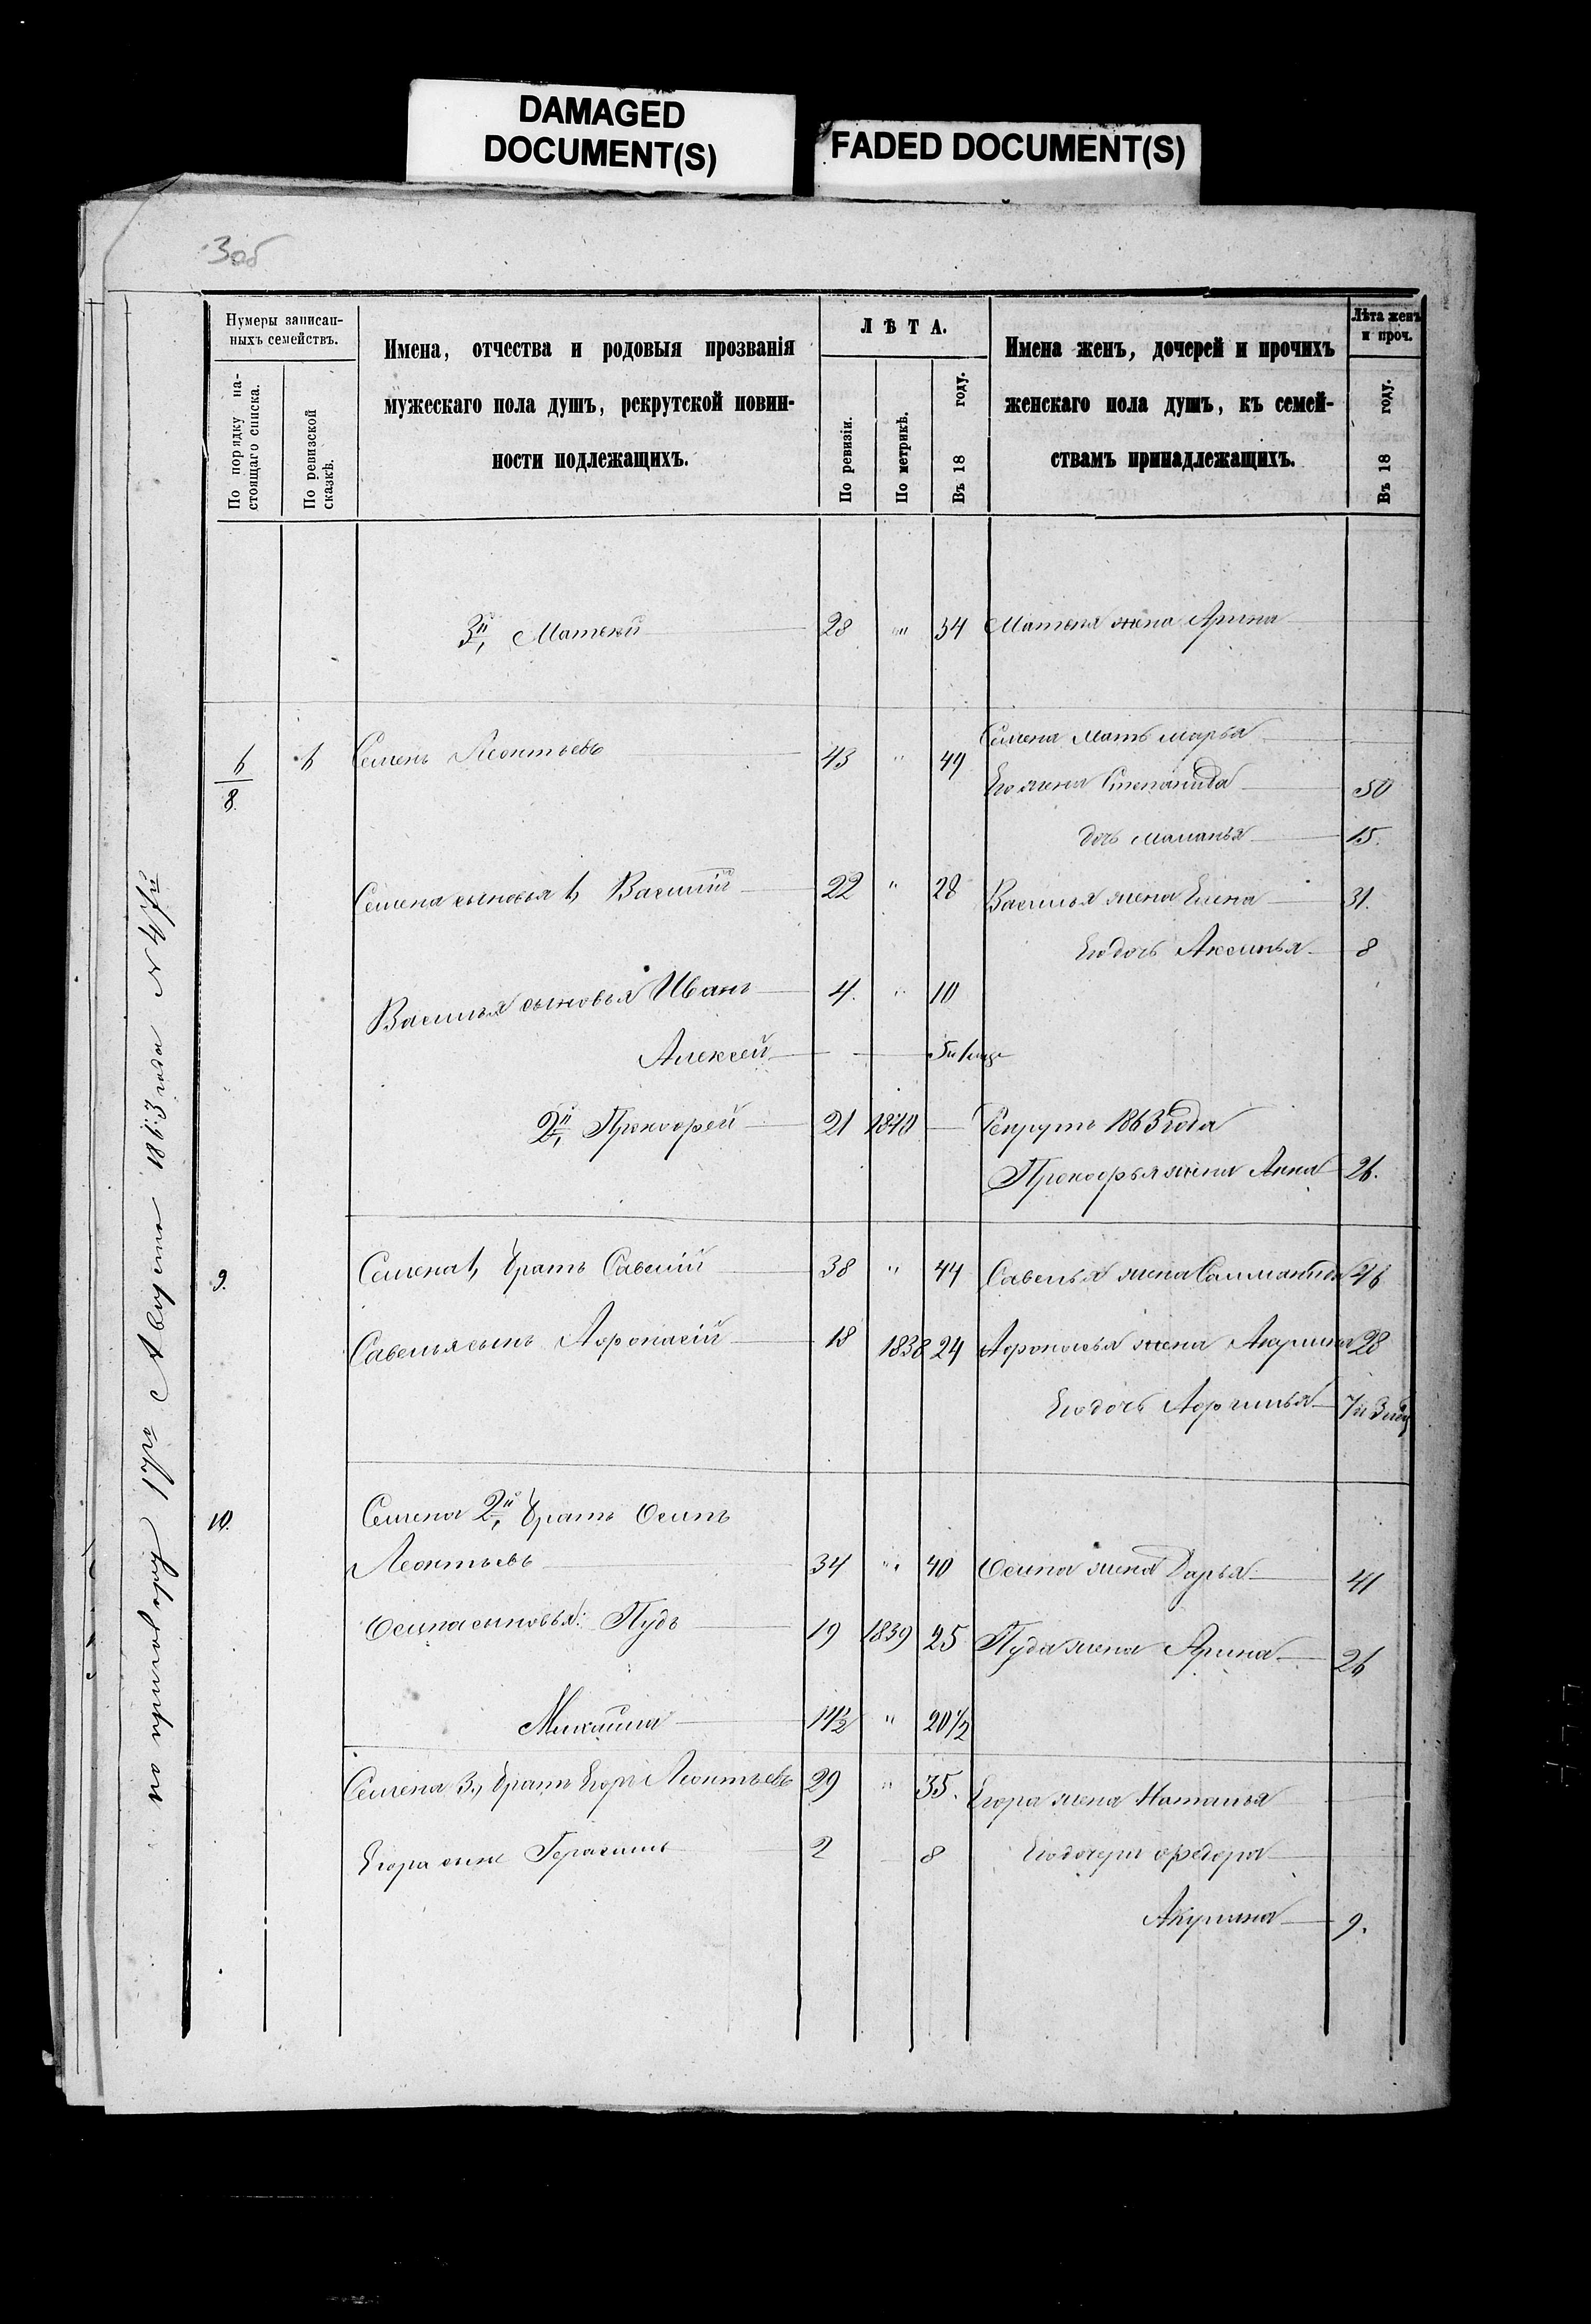 DAMAGED
DOCUMENT(S)
FADED DOCUMENT(S)
3об
Нумеры записан-
ныхъ семействъ.
По порядку на-
стоящаго списка.
По ревизской
сказкѣ.
Имена, отчества и родовыя прозванія
мужескаго пола душъ, рекрутской повин-
ности подлежащихъ.
ЛѢТА.
По ревизіи.
По метрикѣ.
Въ 18 году.
Имена женъ, дочерей и прочихъ
женскаго пола душъ, къ семей-
ствамъ принадлежащихъ.
Лѣта женъ
и проч.
Въ 18 году.
3й, Матвей 28 " 34 Матвея жена Арина
Семена мать марья
6/8. 6 Семенъ Леонтьевъ 43 " 49
Его жена Степанида 50
дочь маланья 15.
Семена сыновья 1, Василій 22 " 28 Василья жена Елена 31.
Его дочь Аксинья 8
Василья сыновья Иванъ 4. " 10
Алексей 5и1мцъ
2й, Прокофей 21 1840 Рекрутъ 1863 года
Прокофья жена Анна 26.
9. Семена 1, братъ Савелій 38 " 44 Савелья жена 46
Савелья сынъ Афонасій 18 1838 24 Афонасья жена Акулина 28
Его дочь 7и3мцъ
10. Семена 2й, братъ Осипъ
Леонтьевъ 34 " 40 Осипа жена Дарья 41
Осипа сыновья: Пудъ 19 1839 25 Пуда жена Арина 26
Михаила 14½ " 20½
Семена 3, братъ Егоръ Леонтьевъ 29 " 35. Егора жена Наталья
Егора сынъ Герасимъ 2 8 Его дочери
Акулина 9.
по приговору 17го Августа 1863 года № 47й